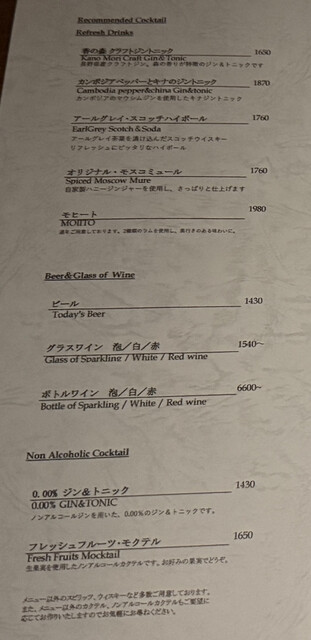 Recommended Cocktail
Refresh Drinks
香の森 クラフトジントニック 1650
Kano Mori Craft Gin&Tonic
長野県産クラフトジン。森の香りが特徴のジン&トニックです
カンボジアペッパーとキナのジントニック 1870
Cambodia pepper&china Gin&tonic
カンボジアのマウシムジンを使用したキナジントニック
アールグレイ・スコッチハイボール 1760
EarlGrey Scotch&Soda
アールグレイ茶葉を漬け込んだスコッチウイスキー
リフレッシュにピッタリなハイボール
オリジナル・モスコミュール 1760
Spiced Moscow Mure
自家製ハニージンジャーを使用し、さっぱりと仕上げます
モヒート 1980
MOJITO
通年ご用意しております。2種類のラムを使用し、奥行きのある味わいに。
Beer&Glass of Wine
ビール 1430
Today's Beer
グラスワイン 泡/白/赤 1540~
Glass of Sparkling / White / Red wine
ボトルワイン 泡/白/赤 6600~
Bottle of Sparkling / White / Red wine
Non Alcoholic Cocktail
0.00% ジン&トニック 1430
0.00% GIN&TONIC
ノンアルコールジンを用いた、0.00%のジン&トニックです。
フレッシュフルーツ・モクテル 1650
Fresh Fruits Mocktail
生果実を使用したノンアルコールカクテルです。お好みの果実でどうぞ。
メニュー以外のスピリッツ、ウィスキーなど多数ご用意しております。
また、メニュー以外のカクテル、ノンアルコールカクテルもご要望に
応じてお作りいたしますのでお気軽にお尋ねください。